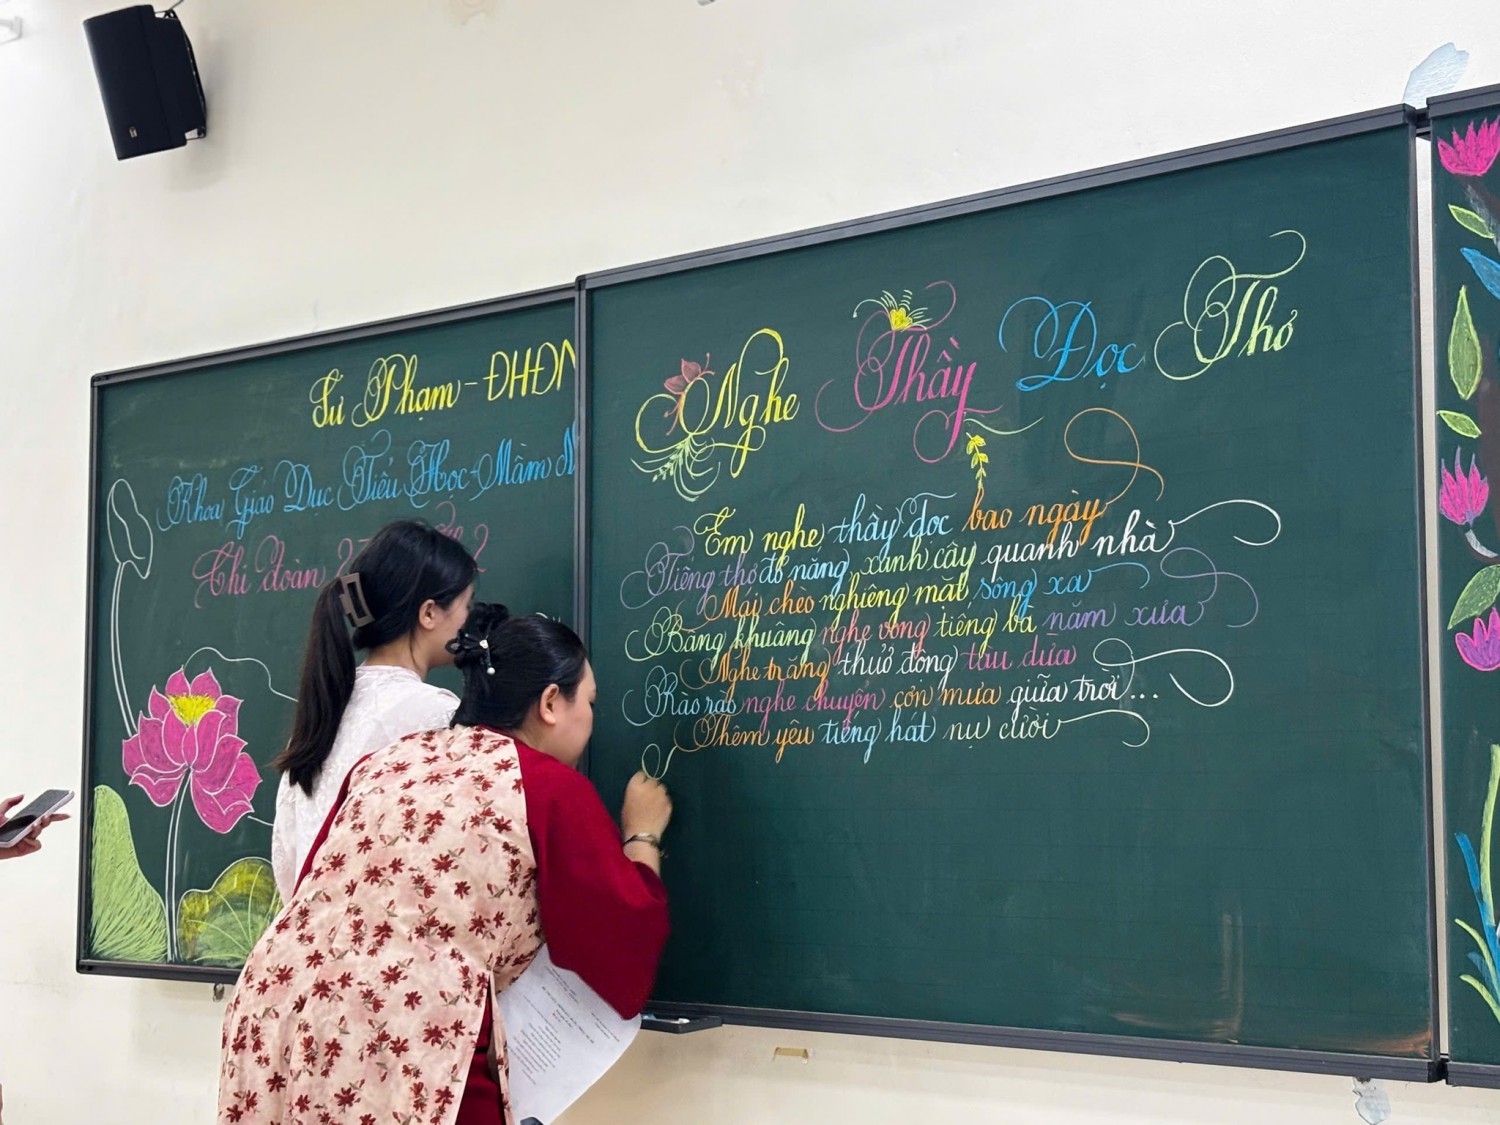 Sư Phạm - ĐHĐN
Khoa Giáo Dục Tiểu Học - Mầm N
Chi đoàn 2 2
Nghe Thầy Đọc Thơ
Em nghe thầy đọc bao ngày
Tiếng thơ đỏ nắng xanh cây quanh nhà
Mái chèo nghiêng mặt sông xa
Bâng khuâng nghe vọng tiếng bà năm xưa
Nghe trăng thuở động tàu dừa
Rào rào nghe chuyển cơn mưa giữa trời...
Thêm yêu tiếng hát nụ cười